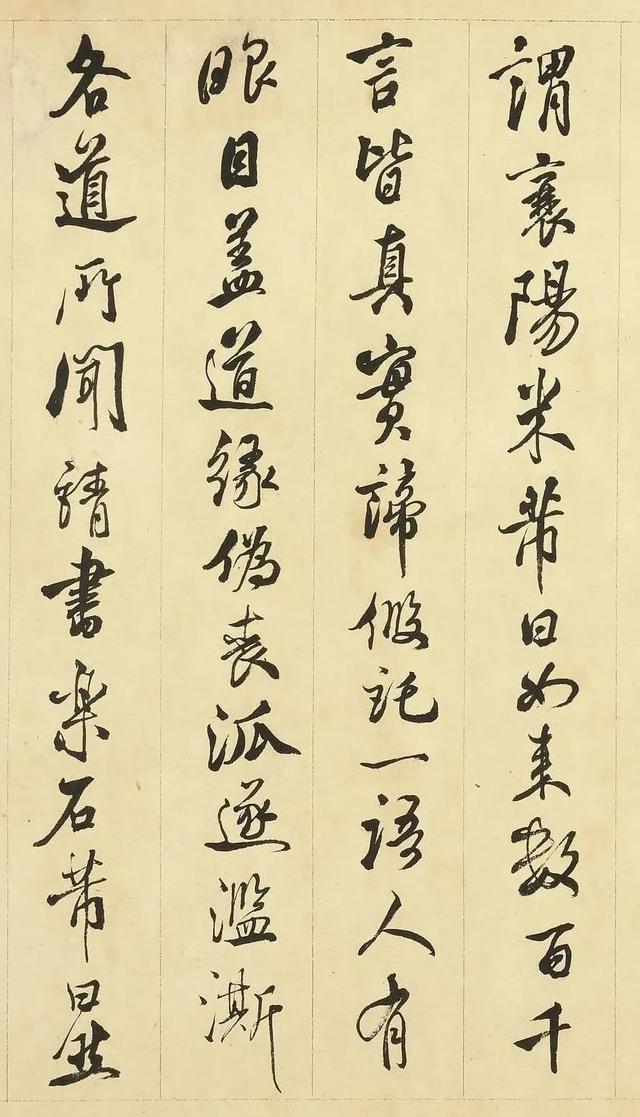 謂襄陽米芾曰如来數百千
言皆真實諦假託一語人有
眼目盖道緣偽喪派遂濫澌
各道所聞請書樂石芾曰盡